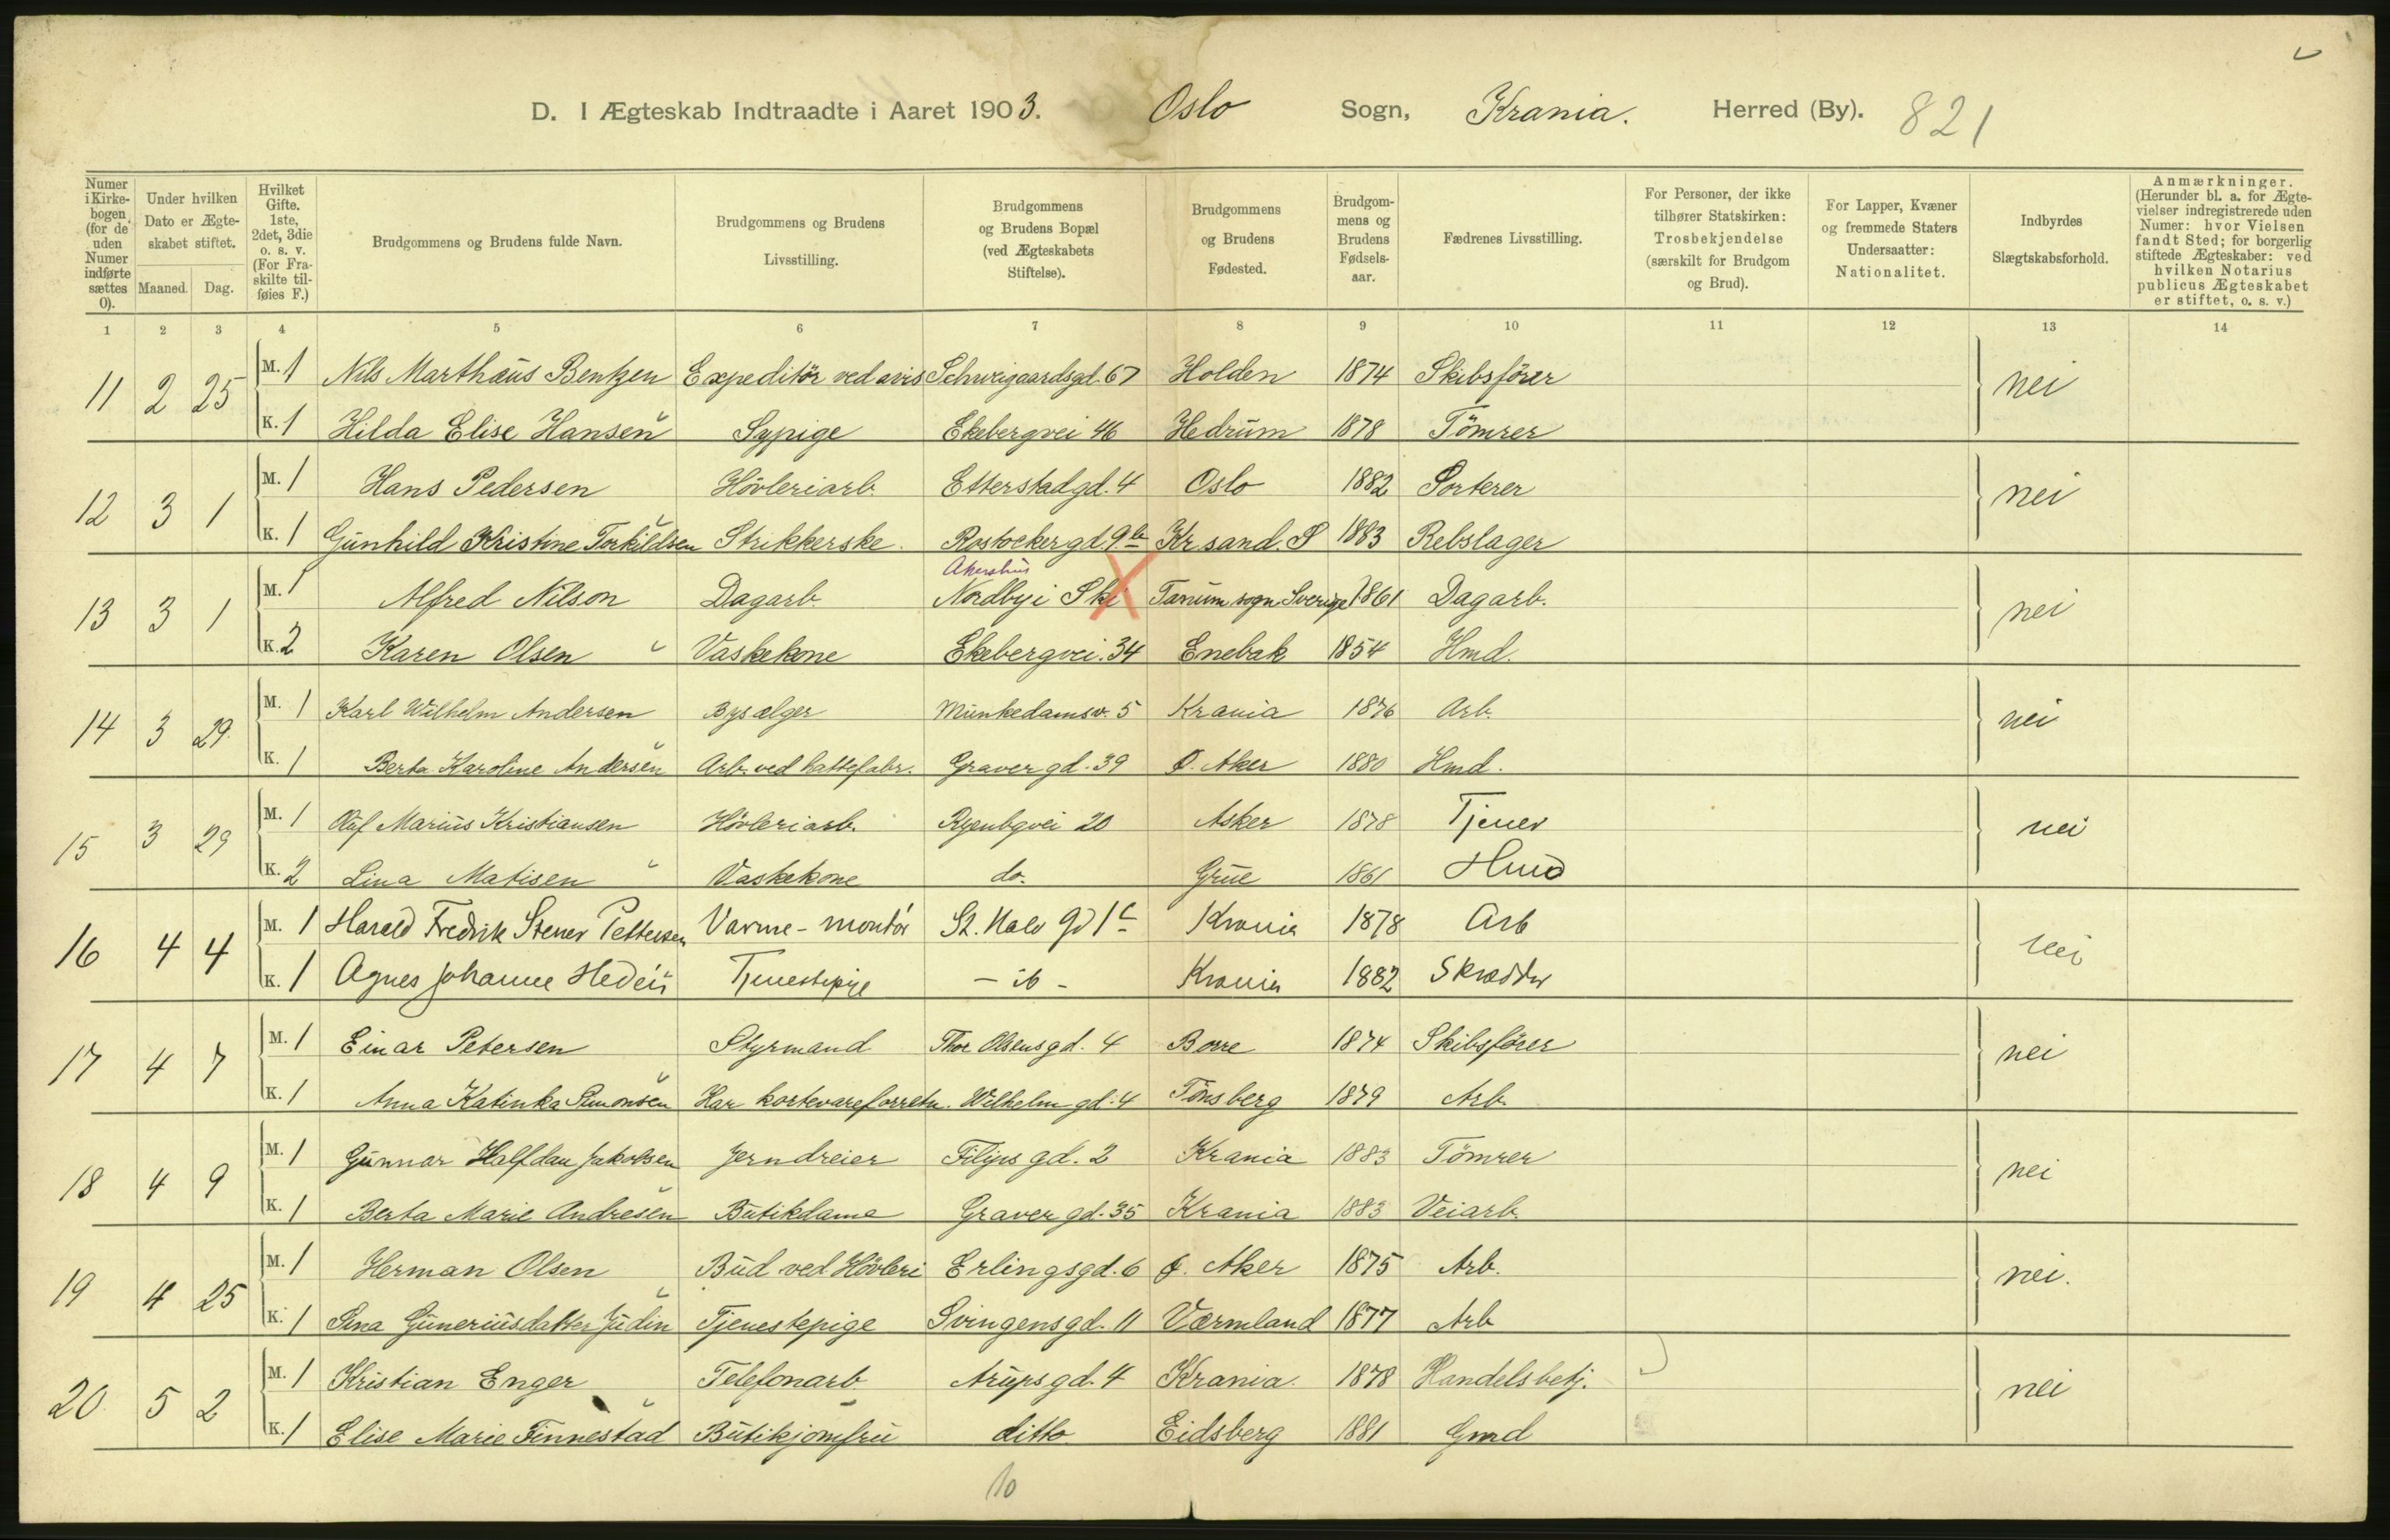 D. I Ægteskab Indtraadte i Aaret 1903. Oslo Sogn, Krania. Herred (By). 821
Numer i Kirkebogen (for de uden Numer indførte sættes 0).
Under hvilken Dato er Ægteskabet stiftet.
Maaned. Dag.
Hvilket Gifte. 1ste, 2det, 3die o. s. v. (For Fraskilte tilføies F.)
Brudgommens og Brudens fulde Navn.
Brudgommens og Brudens Livsstilling.
Brudgommens og Brudens Bopæl (ved Ægteskabets Stiftelse).
Brudgommens og Brudens Fødested.
Brudgommens og Brudens Fødselsaar.
Fædrenes Livsstilling.
For Personer, der ikke tilhører Statskirken: Trosbekjendelse (særskilt for Brudgom og Brud).
For Lapper, Kvæner og fremmede Staters Undersaatter: Nationalitet.
Indbyrdes Slægtskabsforhold.
Anmærkninger. (Herunder bl. a. for Ægtevielser indregistrerede uden Numer: hvor Vielsen fandt Sted; for borgerlig stiftede Ægteskaber: ved hvilken Notarius publicus Ægteskabet er stiftet, o. s. v.)
1 2 3 4 5 6 7 8 9 10 11 12 13 14
11 2 25 M. 1 Nils Marthaus Bentzen Expeditör ved avis Schweigaardsgd. 67 Holden 1874 Skibsförer nei
K. 1 Hilda Elise Hansen Sypige Ekebergvei 46 Hedrum 1878 Tömrer
12 3 1 M. 1 Hans Pedersen Hövleriarb. Etterstadgd. 4 Oslo 1882 Sorterer nei
K. 1 Gunhild Kristine Torkildsen Strikkerske. Rostockergd. 9b Kr.sand. S 1883 Rebslager
Akershus
13 3 1 M. 1 Alfred Nilson Dagarb. Nordby i Ski Tanum sogn Sverige 1861 Dagarb. nei
K. 2 Karen Olsen Vaskekone Ekebergvei. 34 Enebak 1854 Hmd.
14 3 29 M. 1 Karl Wilhelm Andersen Bysælger Munkedamsv. 5 Krania 1876 Arb. nei
K. 1 Berta Karoline Andersen Arb. ved hattefabr. Gravergd. 39 Ø. Aker 1880 Hmd.
15 3 29 M. 1 Oluf Marius Kristiansen Hövleriarb. Ryenbgvei 20 Asker 1878 Tjener nei
K. 2 Lina Matisen Vaskekone do. Grue 1861 Hmd
16 4 4 M. 1 Harald Fredrik Stener Pettersen Varme-montör St. Halv gd 1c Krania 1878 Arb nei
K. 1 Agnes Johanne Hedén Tjenestepige - ib - Krania 1882 Skrædder
17 4 7 M. 1 Einar Petersen Styrmand Thor Olsensgd. 4 Borre 1874 Skibsförer nei
K. 1 Anna Katinka Simonsen Har kortevareforretn. Wilhelmgd. 4 Tönsberg 1879 Arb.
18 4 9 M. 1 Gunnar Halfdan Jakobsen Jerndreier Filipsgd. 2 Krania 1883 Tömrer nei
K. 1 Berta Marie Andresen Butikdame Gravergd. 35 Krania 1883 Veiarb.
19 4 25 M. 1 Herman Olsen Bud ved Hövleri Erlingsgd. 6 Ø. Aker 1875 Arb. nei.
K. 1 Sina Guneriusdatter Judin Tjenestepige Svingensgd. 11 Værmland 1877 Arb
20 5 2 M. 1 Kristian Enger Telefonarb. Arupsgd. 4 Krania. 1878 Handelsbetj. nei
K. 1 Elise Marie Finnestad Butikjomfru ditto Eidsberg 1881 Gmd
10